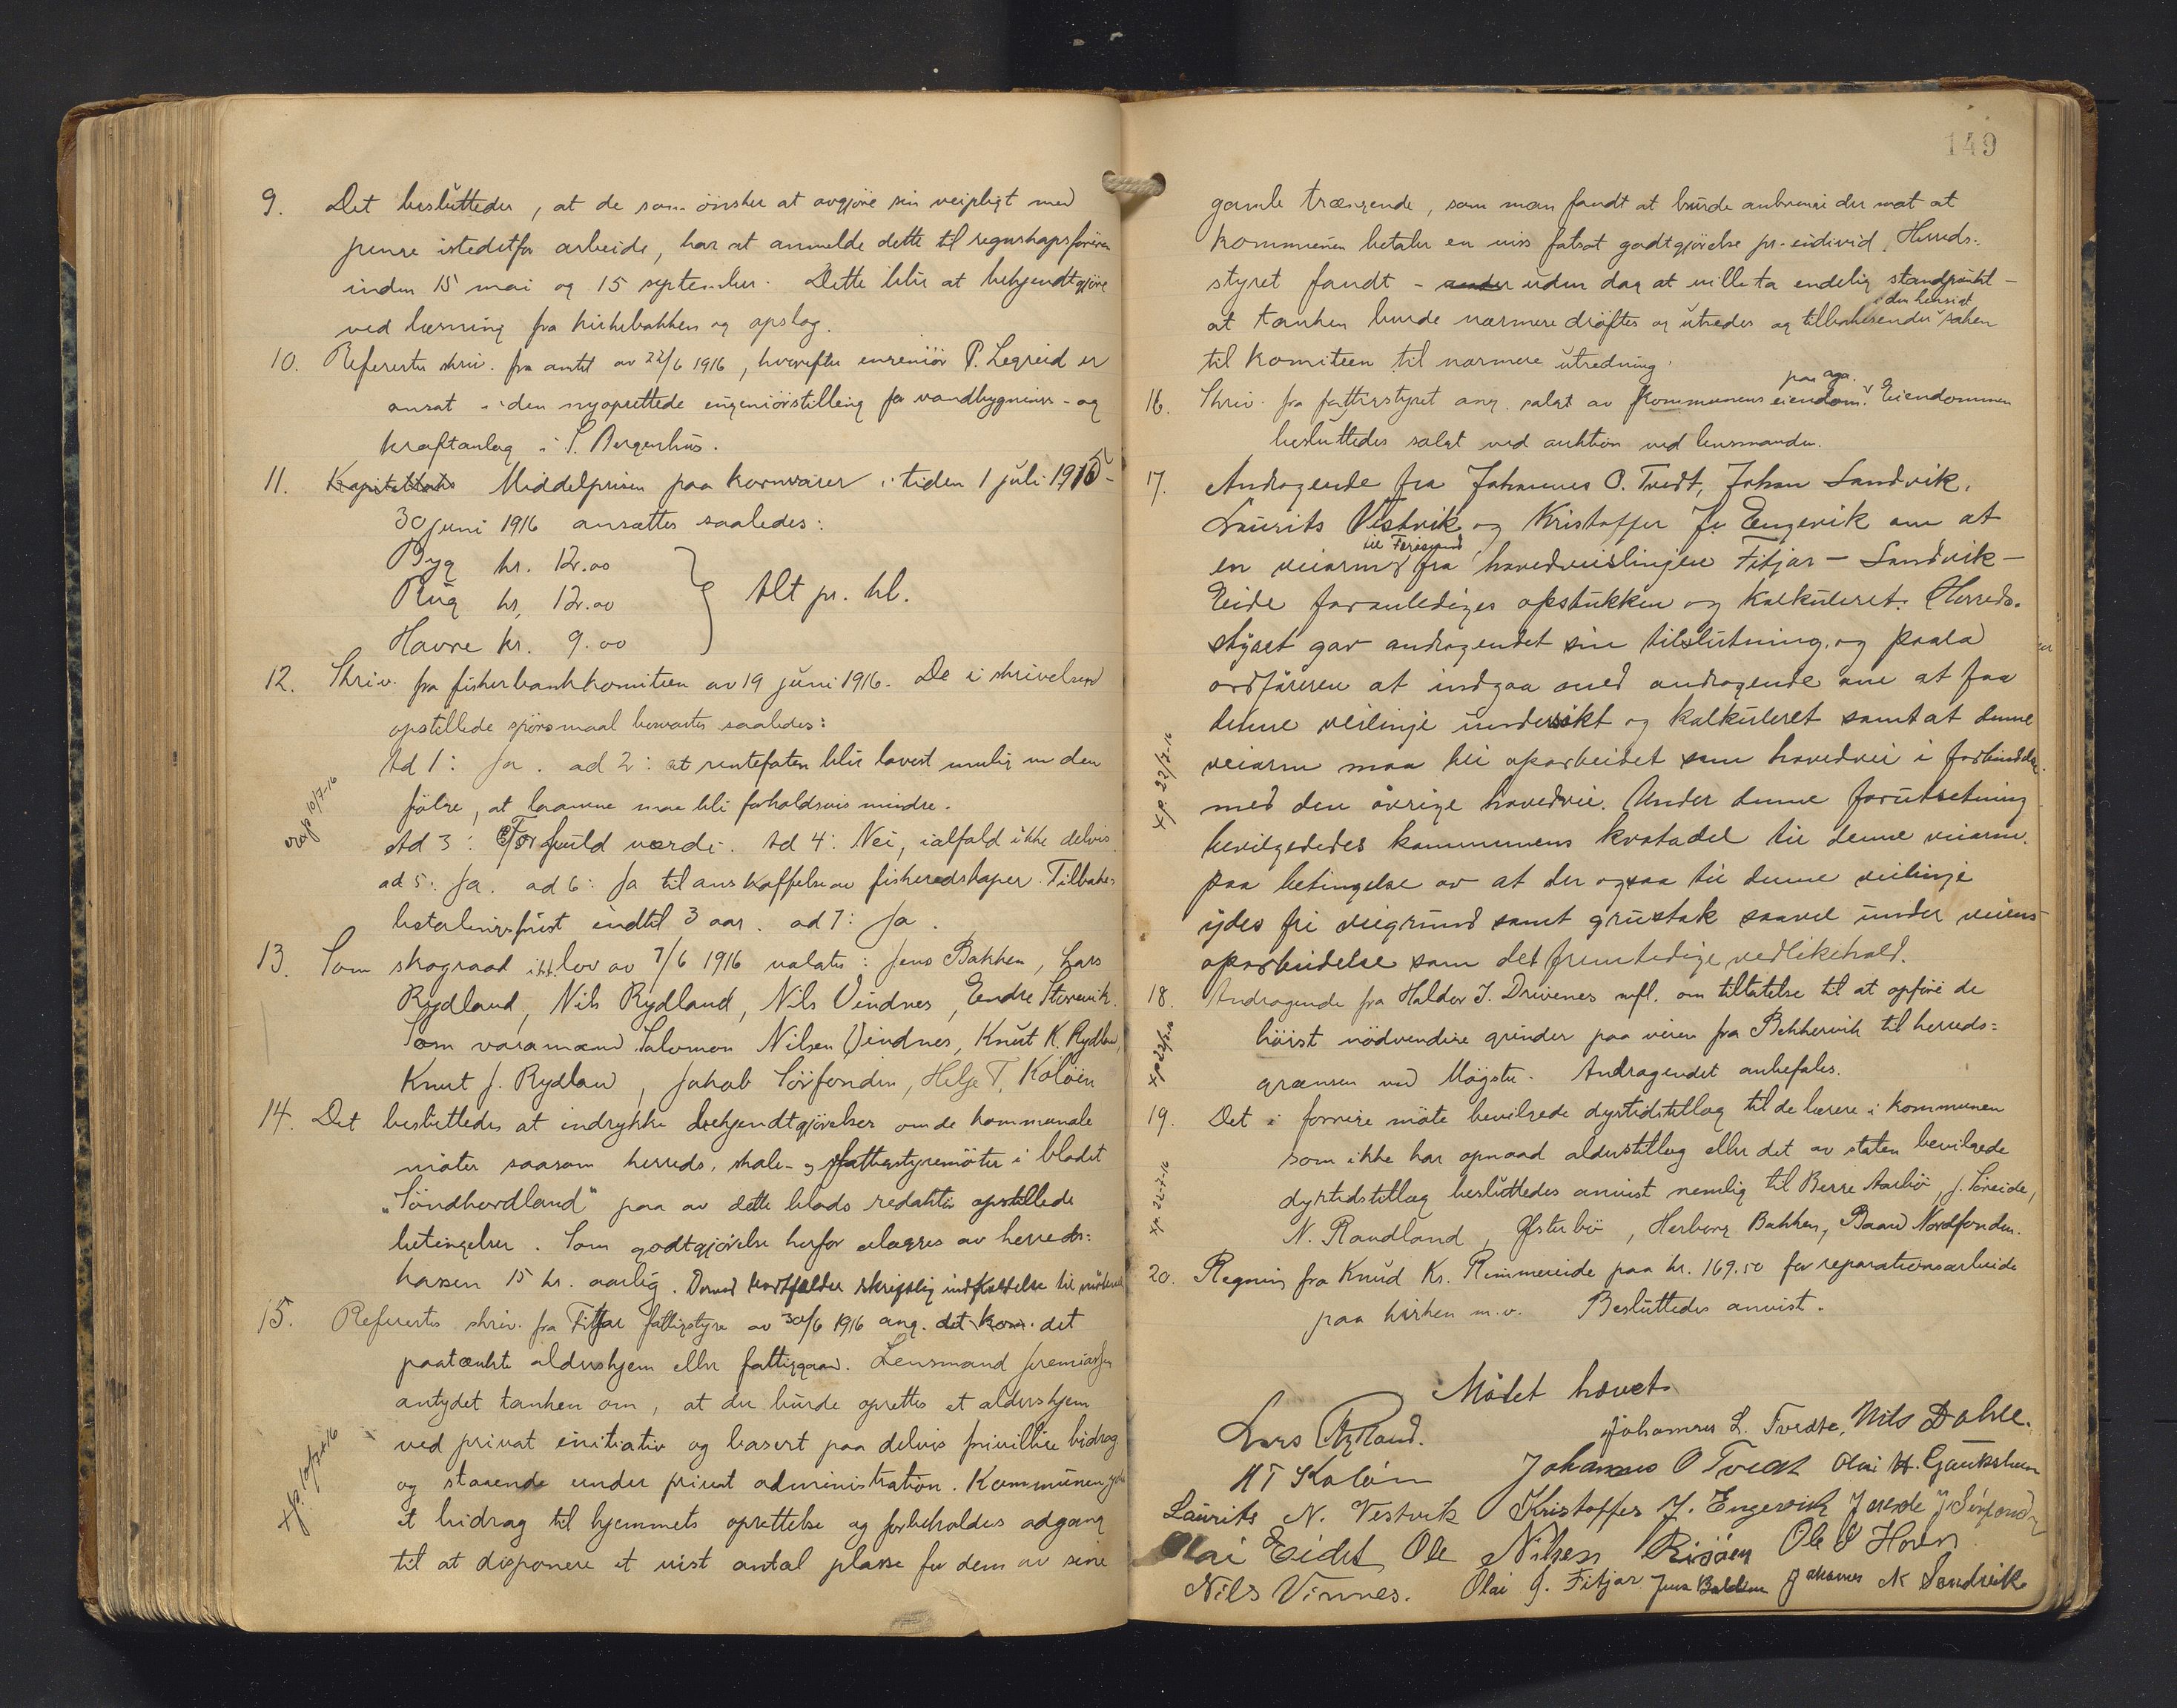 9. Det besluttedes, at de som önsker at avgjöre sin veipligt med
penge istedetfor arbeide, har at anmelde dette til regnskapsföreren
inden 15 mai og 15 september. Dette blir at bekjendtgjöre
ved læsning fra kirkebakken og opslag.
10. Refertes skriv. fra amtet av 22/6 1916, hvorefter ingeniör P. Legreid er
ansat i den nyoprettede ingeniörstilling for vandbygnings- og
kraftanlæg i S. Bergenhus.
11. Kapiteltakst Middelprisen paa kornvarer i tiden 1 juli 1915 -
30 juni 1916 ansættes saaledes:
Byg kr. 12.00
Rug kr. 12.00 Alt pr. hl.
Havre kr. 9.00
12. Skriv. fra fiskerbankkomiteen av 19 juni 1916. De i skrivelsen
opstillede spörsmaal besvartes saaledes:
Ad 1: Ja. ad 2: at rentefoten blir lavest mulig om den
fölge, at laanene maa bli forholdsvis mindre.
Ad 3: For fuld værdi. Ad 4: Nei, ialfald ikke delvis
ad 5: Ja. ad 6: Ja til anskaffelse av fiskeredskaper. Tilbake-
betalingsfrist indtil 3 aar. ad 7: Ja.
13. Som skograad iht. lov av 7/6 1916 valgtes: Jens Bakken, Lars
Rydland, Nils Rydland, Nils Vindnes, Endre Storevik.
Som varamænd Salomon Nilsen Vindnes, Knut K. Rydland,
Knut J. Rydland, Jakob Sörfonden, Helje T. Koløen
14. Det besluttedes at indrykke bekjendtgjörelser om de kommunale
möter saasom herreds, skole- og fattigstyremöter i bladet
"Söndhordland" paa av dette blads redaktör opstillede
betingelser. Som godtgjörelse herfor utlægges av herreds-
kassen 15 kr. aarlig. Derved bortfalder skriftlig indkaldelse til möterne
15. Refertes skriv. fra Fitjar fattigstyre av 30/6 1916 ang. det kom. det
paatænkte aldershjem eller fattiggaard. Lensmand Jeremiassen
antydet tanken om, at der burde oprettes et aldershjem
ved privat initiativ og basert paa delvis frivillige bidrag
og staaende under privat administration. Kommunen yder
et bidrag til hjemmets oprettelse og forbeholdes adgang
til at disponere et vist antal plasse for dem av sine
149
gamle trængende, som man fandt at burde anbringe der mot at
kommunen betaler en viss fatsat godtgjörelse pr. individ. Herreds-
styret fandt - uden dag at ville ta endelig standpunkt -
at tanken burde nærmere dröftes og utredes og tilbakesender i den hensigt saken
til komiteen til nærmere utredning.
16. Skriv. fra fattigstyret ang. salget av kommunens eiendom paa Aga. Eiendommen
besluttedes solgt ved auktion ved lensmanden.
17. Andragende fra Johannes O. Tvedt, Johan Sandvik,
Laurits Vestvik og Kristoffer J. Engevik om at
en veiarm til Færøsund fra hovedveislinjen Fitjar - Sandvik -
Eide foranlediges opstukken og kalkuleret. Herreds-
styret gav andragendet sin tilslutning og paala
ordföreren at indgaa med andragende om at faa
denne veilinje undersökt og kalkuleret samt at denne
veiarm maa bli oparbeidet som hovedvei i forbindelse
med den övrige hovedvei. Under denne forutsetning
bevilgedes kommunens kvotadel til denne veiarm
paa betingelse av at der ogsaa til denne veilinje
ydes fri veigrund samt grustak saavel under veiens
oparbeidelse som det fremtidige vedlikehold.
18. Andragende fra Haldor J. Drivenes mfl. om tillatelse til at opföre de
höist nödvendige grinder paa veien fra Bekkervik til herreds-
grænsen ved Mögster. Andragendet anbefales.
19. Det i forrige möte bevilgede dyrtidstillæg til de lærere i kommunen
som ikke har opnaad alderstillæg eller det av staten bevilgede
dyrtidstillæg besluttedes anvist nemlig til Berge Aarbö, J. Söreide,
N. Raudland, Østerbö, Herborg Bakken, Baard Nordfonden.
20. Regning fra Knud Kr. Rimmereide paa kr. 169.50 for reparationsarbeide
paa kirken m.v. Besluttedes anvist.
Mötet hævet.
Lars Rydland. Johannes L. Tvedte, Nils Dahle.
H T Koløen Johannes O Tvedt Olai H. Gaukshem
Laurits N. Vestvik Kristoffer J. Engevik J. Sörfonden
Olai Eidet Ole Nilsen Risöen Ole O Hovn
Nils Vinnes. Olai G. Fitjar Jens Bakken Johannes N Sandvik